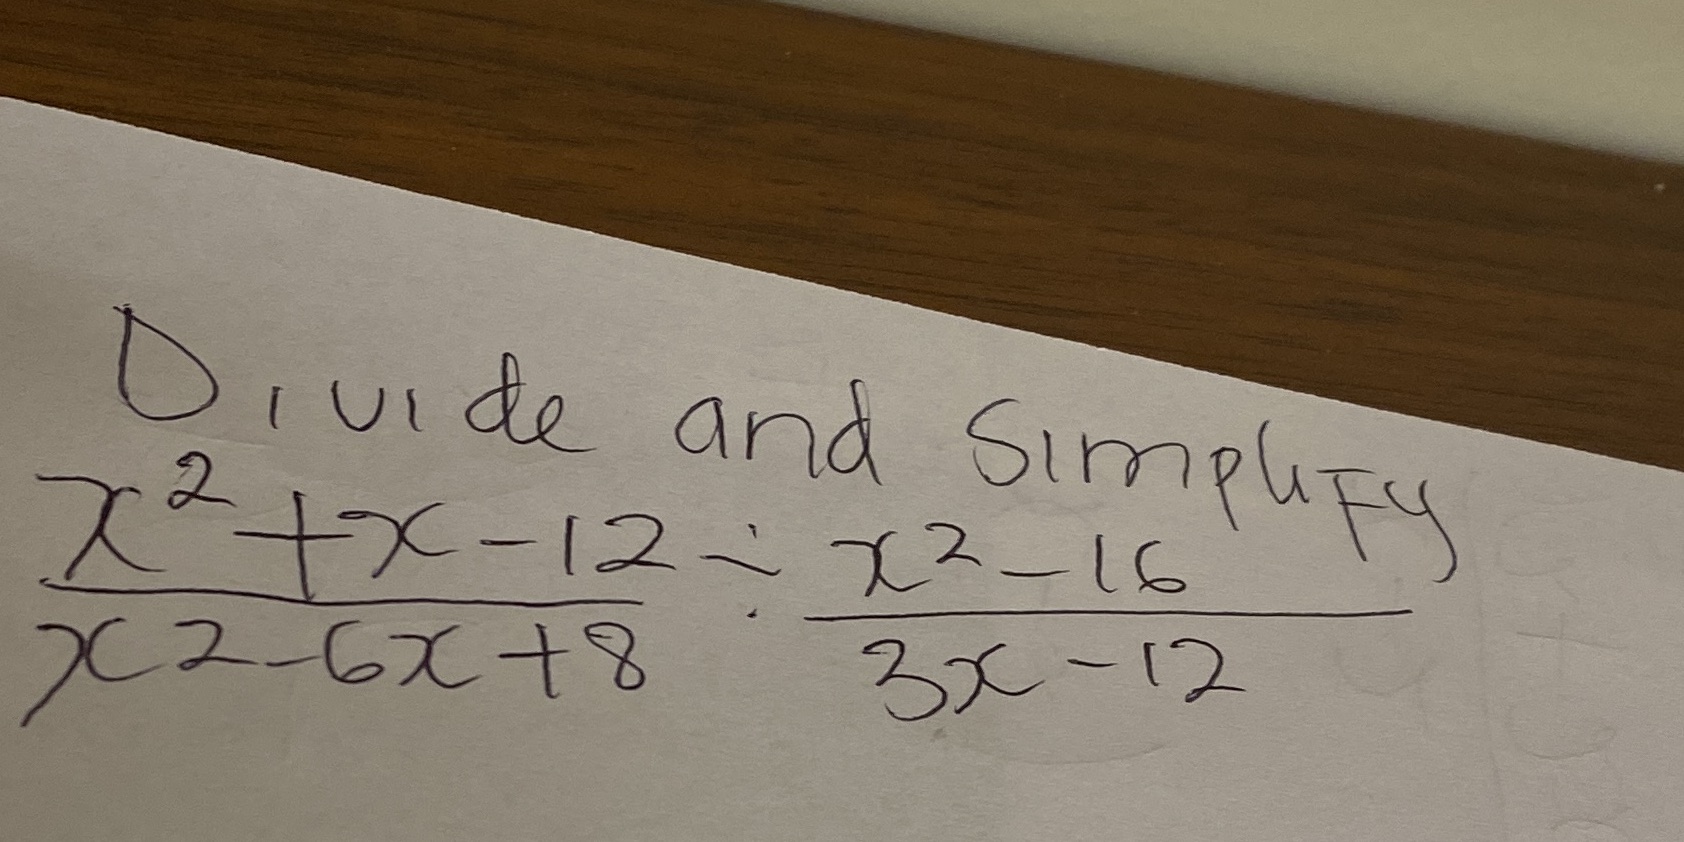 Divide and Simplify
x² + x - 12 ÷ x² - 16
x2 - 6x + 8 3x - 12